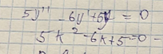 5y'' - 6y' + 5y = 0
5k² - 6k + 5 = 0